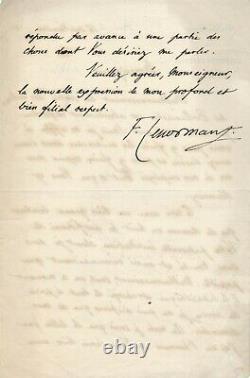 répondu par avance à une partie des
choses dont Vous désiriez me parler.
Veuillez agréer, Monseigneur,
la nouvelle expression de mon profond et
bien filial respect.
F. Lenormant